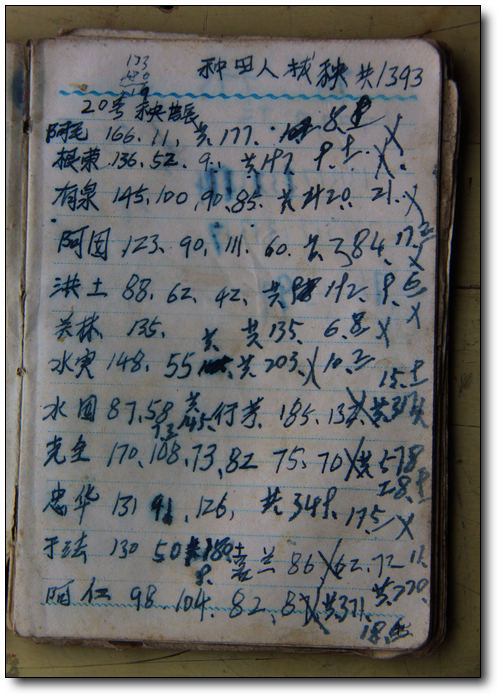 133
种田人拔秧共1393
20号 秧账
阿毛 166. 11, 共177. 8.8
根荣 136. 52. 9. 共197. 9.
有泉 145. 100. 90. 85. 共420. 21.
阿国 123. 90. 111. 60. 共384. 17.2
洪土 88. 62. 42. 共192. 9.6
关林 135. 共135. 6.8
水实 148. 55 共203. 10.2
水国 87. 58 共145. 185. 132. 共317
15.
170. 108. 73. 82 75. 70 共578
28.
忠华 131 91. 126, 共348. 17.5
130 50 共180 兰 86 62. 72
阿仁 98. 104. 82. 87 共371. 共220.
18.